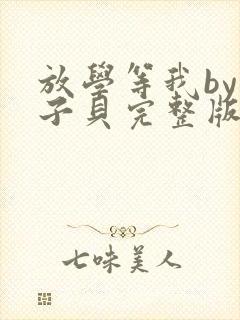 放學等我by
子貝完整版
七味美人